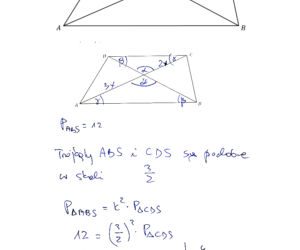 A B
D C
β α 2x γ
3x α
A γ β B
P_ABS = 12
Trójkąty ABS i CDS są podobne
w skali 3/2
P_ΔABS = k² · P_ΔCDS
12 = (3/2)² · P_ΔCDS